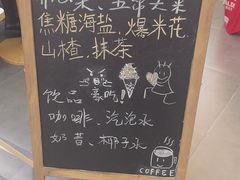 焦糖海盐,爆米花
山楂,抹茶
饮品
咖啡、汽泡水
奶昔、椰子水
COFFEE